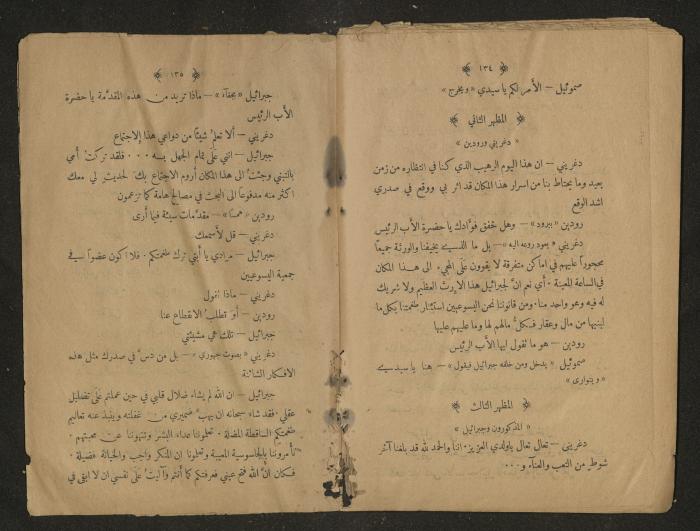 ﴿ ١٣٤ ﴾
صموئيل – الأمر لكم يا سيدي « ويخرج »
﴿ المظهر الثاني ﴾
« دغريني ورودين »
دغريني – ان هذا اليوم الرهيب الذي كنا في انتظاره من زمن
بعيد وما يحتاط بنا من اسرار هذا المكان قد اثر بي ووقع في صدري
اشد الوقع
رودين « ببرود » – وهل خفق فؤادك يا حضرة الأب الرئيس
دغريني « يعود روعه اليه » – بل ما الذي يخيفنا والورثة جميعاً
محجوراً عليهم في اماكن متفرقة لا يقوون على المجيء الى هذا المكان
في الساعة المعينة ٠ أي نعم ان لجبرائيل هذا الإرث العظيم ولا شريك
له فيه وهو واحد منا ٠ ومن قانوننا نحن اليسوعيين استئثار طغمتنا بكل ما
لبنيها من مال وعقار فكل مالهم لها وما عليهم عليها
رودين – هو ما تقول ايها الأب الرئيس
صموئيل « يدخل ومن خلفه جبرائيل فيقول » – هنا يا سيدي
« ويتوارى »
﴿ المظهر الثالث ﴾
« المذكورون وجبرائيل »
دغريني – تعال تعال ياولدي العزيز ٠ اننا والحمد لله قد بلغنا آخر
شوط من التعب والعناء و٠٠٠
﴿ ١٣٥ ﴾
جبرائيل « بجفآء » – ماذا تريد من هذه المقدمة يا حضرة
الأب الرئيس
دغريني – ألا تعلم شيئاً من دواعي هذا الاجتماع
جبرائيل – انني على تمام الجهل به ٠٠٠ فلقد تركت أمي
بالتبني وجئت الى هذا المكان أروم الاجتماع بك لحديث لي معك
اكثر منه مدفوعاً الى البحث في مصالح هامة كما تزعمون
رودين « همساً » – مقدمات سيئة فيما أرى
دغريني – قل لأسمعك
جبرائيل – مرادي يا أبتي ترك طغمتكم ٠ فلا اكون عضواً في
جمعية اليسوعيين
دغريني – ماذا أقول
رودين – أو تطلب الانقطاع عنا
جبرائيل – تلك هي مشيئتي
دغريني « بصوت جهوري » – بل من دس في صدرك مثل هذه
الافكار الشائنة
جبرائيل – ان الله لم يشاء ضلال قلبي في حين عملتم على تضليل
عقلي ٠ فقد شاء سبحانه ان يهب ضميري من غفلته وينبذ عنه تعاليم
طغمتكم الساقطة المضلة ٠ تحملوننا عداء البشر وتنهوننا عن محبتهم ٠
تأمروننا بالجاسوسية المعيبة وتعلمونا ان المنكر واجب والخيانة فضيلة ٠
فكان ان الله فتح عيني فعرفتكم كما أنتم وآليت على نفسي ان لا ابقى في